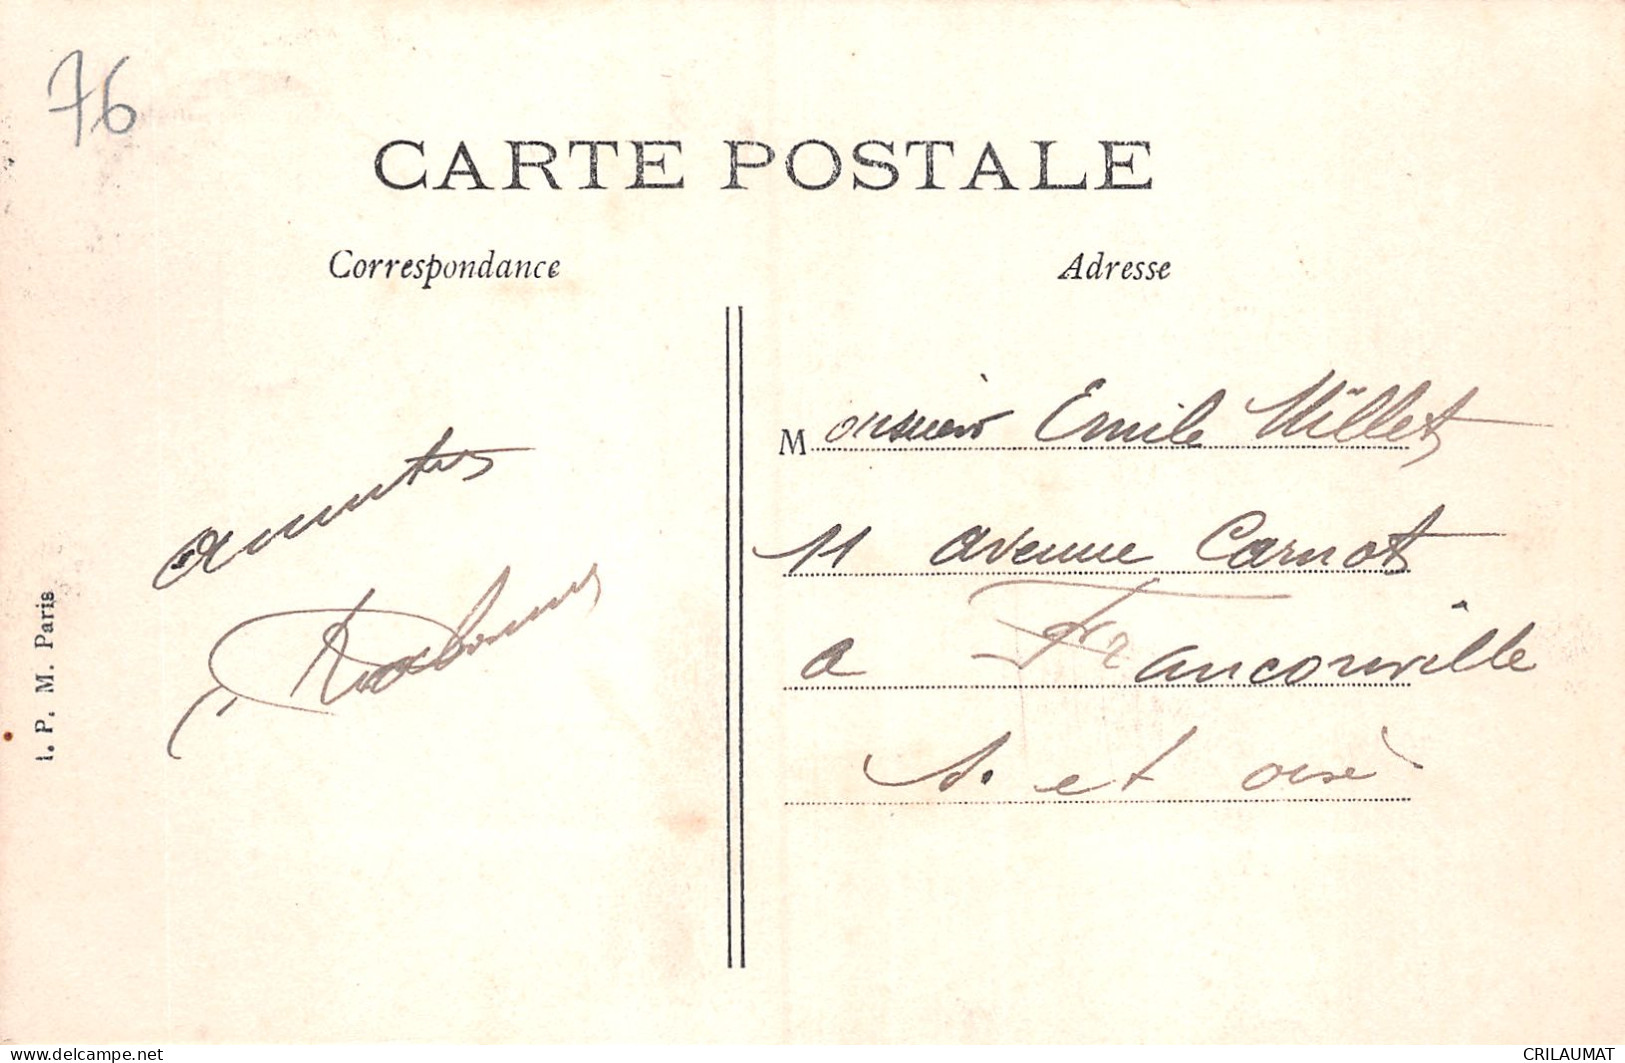 76
CARTE POSTALE
Correspondance
Adresse
Monsieur Emile Millet
11 avenue Carnot
a Franconville
S. et oise
I. P. M. Paris
https://www.delcampe.net
CRILAUMAT